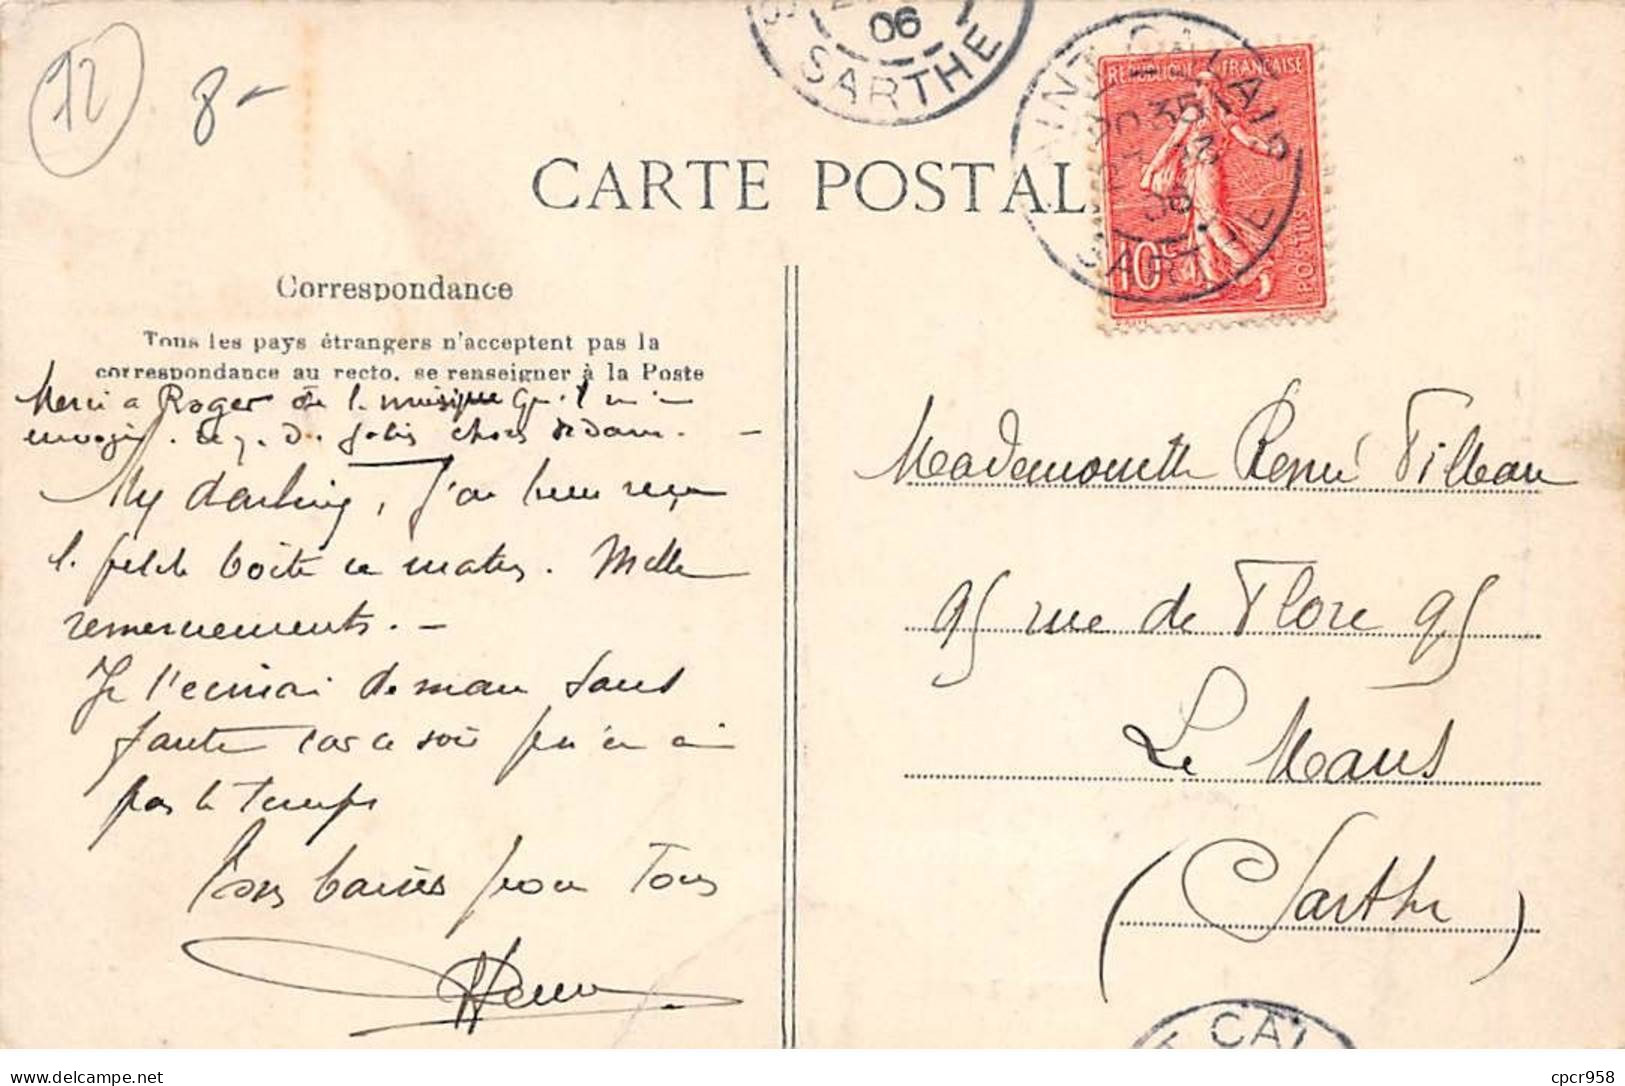 72
8-
06
SARTHE
SAINT CALAIS
35
06
SARTHE
REPUBLIQUE FRANÇAISE
10c
POSTES
CARTE POSTALE
Correspondance
Tous les pays étrangers n'acceptent pas la
correspondance au recto, se renseigner à la Poste
Merci a Roger de la musique qu'il m'a
envoyé. Il y a de jolies choses dedans. -
My darling, J'ai bien reçu
la petite boîte ce matin. Mille
remerciements. -
Je t'écrirai demain sans
faute car ce soir je n'en ai
pas le temps
Bons baisers pour Tous
Mademoiselle Renée Tilleau
95 rue de Flore 95
Le Mans
(Sarthe)
T CAL
delcampe.net
cpcr958